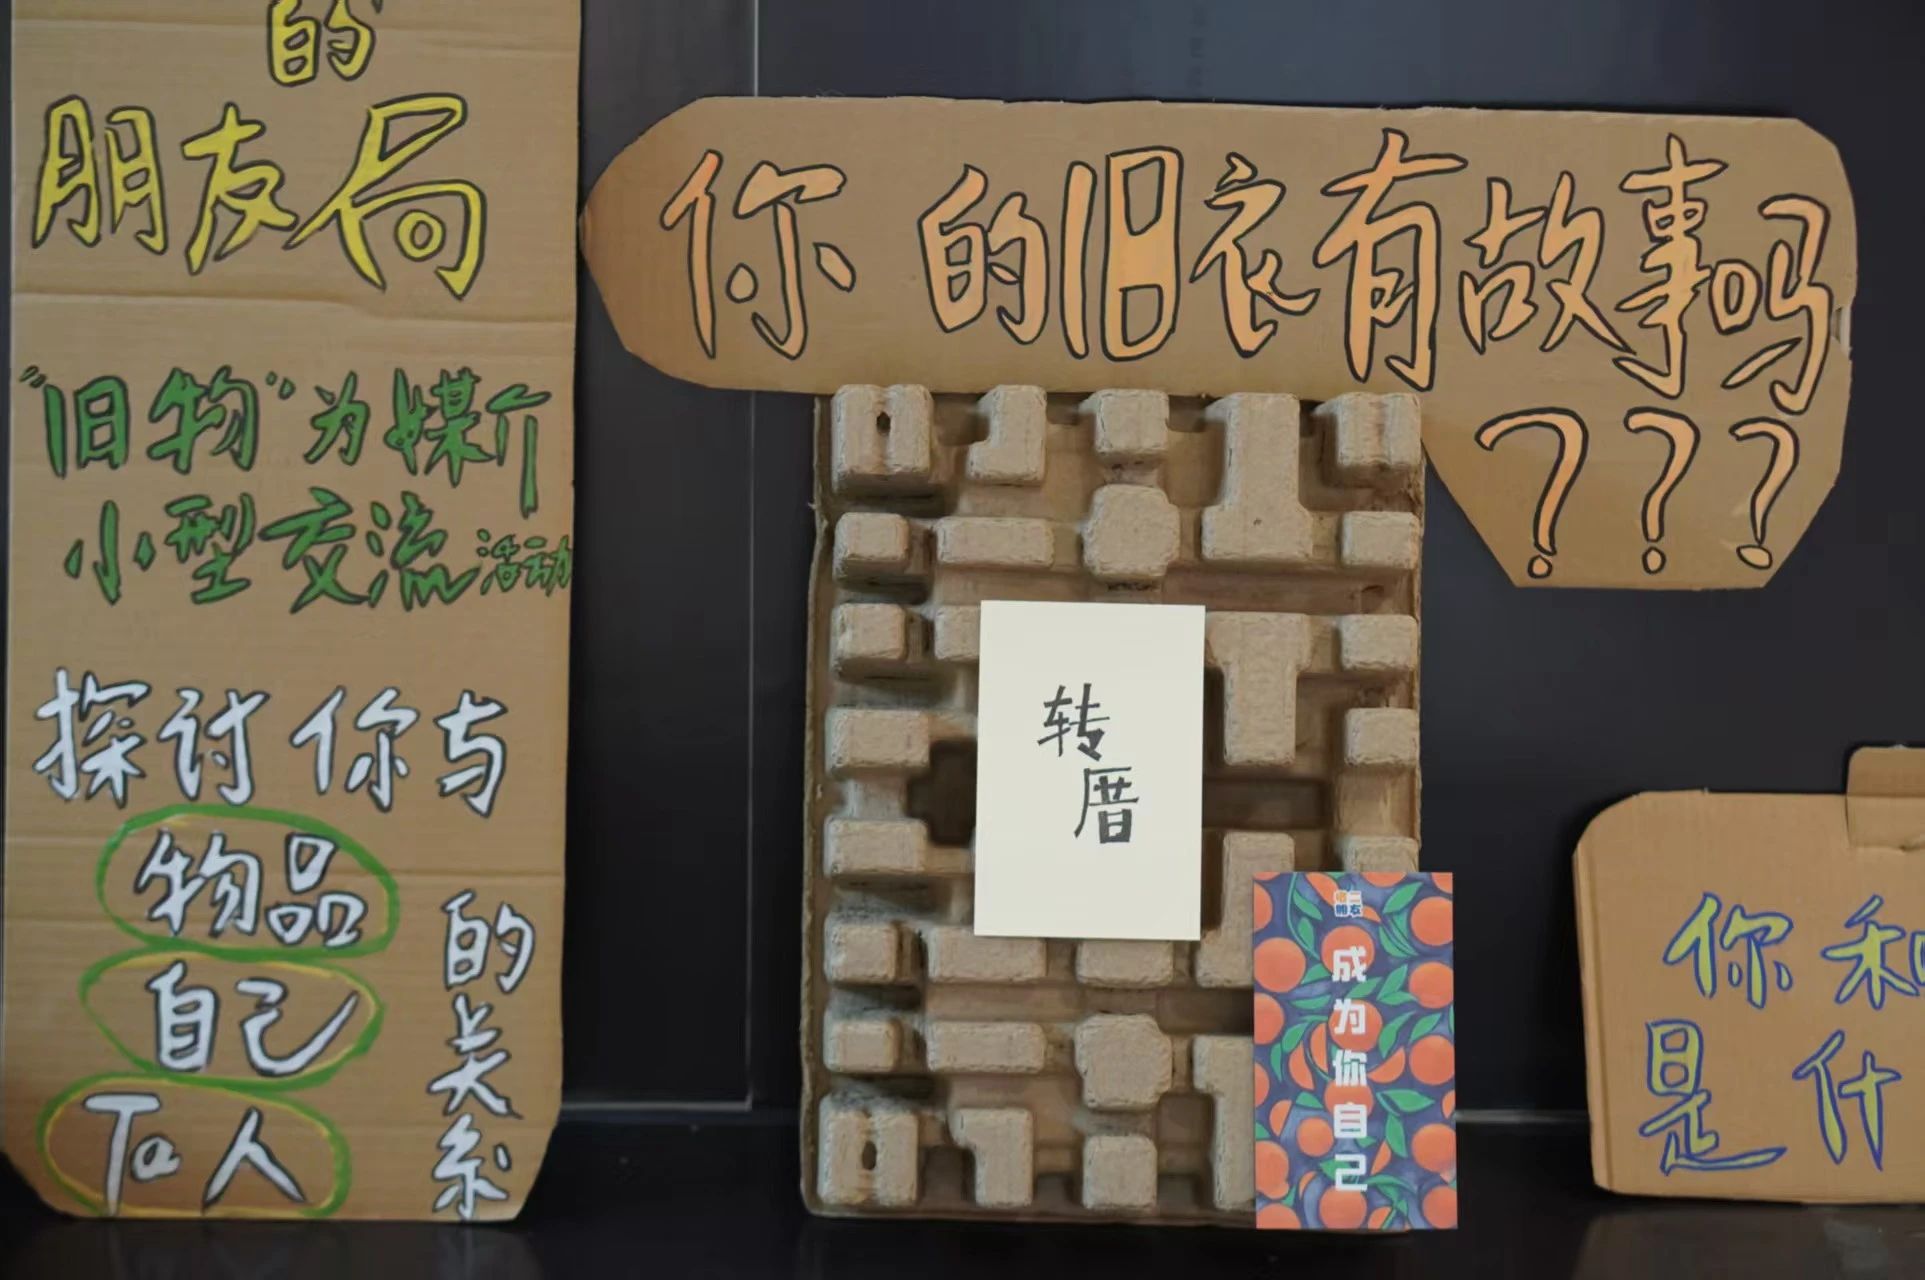 的
朋友局
"旧物"为媒介
小型交流活动
探讨你与
物品
自己
Ta人
的关系
你的旧衣有故事吗
？？？
转
厝
二
朋友
成为你自己
你和
是什